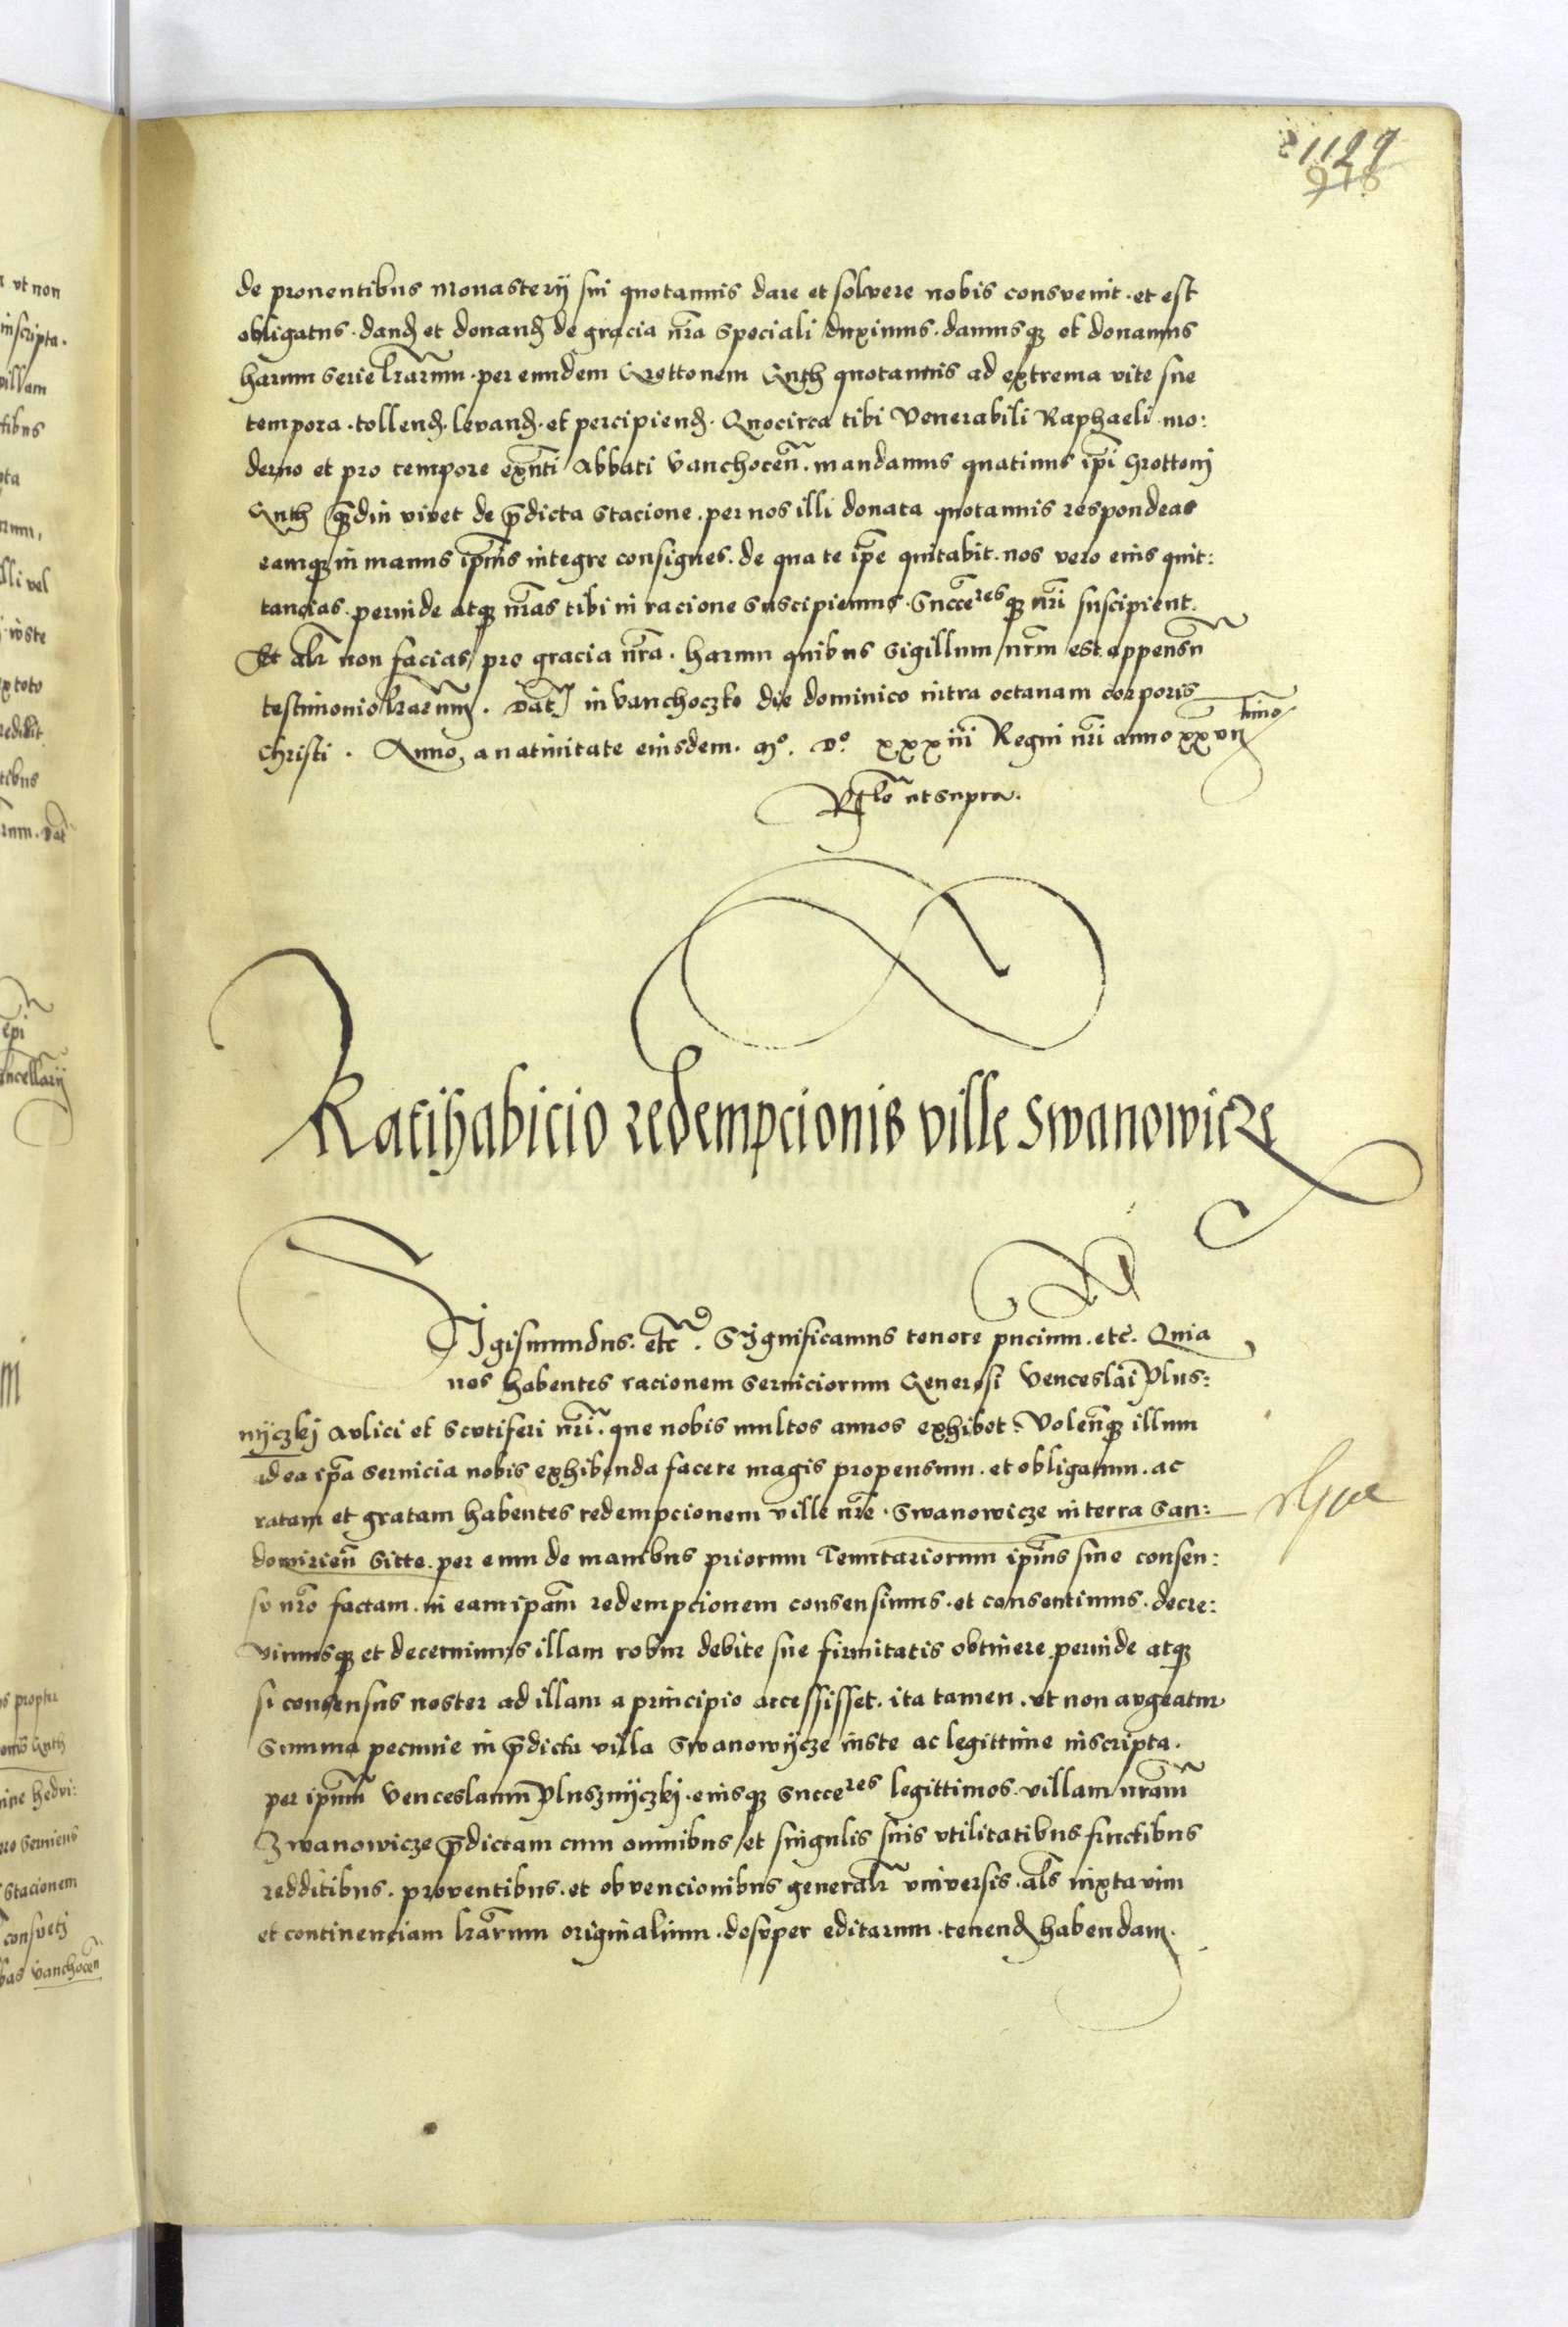 1129
978
de proventibus monasterij sui quotannis dare et solvere nobis consvenit . et est
obligatus . dand et donand de gracia nra speciali duximus . damusq et donamus
harum serie lrarum . per eundem Grottonem Gnth quotannis ad extrema vite sue
tempora . tollend . levand . et percipiend . Quocirca tibi Venerabili Raphaeli mo:
derno et pro tempore exnti Abbati Vanchocen . mandamus quatinus ipi Grottonj
Gnth qdiu vivet de pdicta stacione . per nos illi donata quotannis respondeas
eamq in manus ipius integre consignes . de qua te ipe quitabit . nos vero eius quit:
tancias . perinde atq nras tibi in racione suscipiemus . Succeresq nri suscipient .
Et alr non facias pro gracia nra . harum quibus sigillum nrm est appensu
testimonio lrarum . Dat in Vanchoczko die dominico intra octavam corporis
christi . Anno a nativitate eiusdem . Mo . Do xxxiii Regni nri anno xxvii timo
Rlo ut supra .
Ratihabicio redempcionis ville Swanowicze
Sigismundus . etc . Significamus tenore pncium . etc . Quia
nos habentes racionem serviciorum Generosi Venceslai Plus:
nijczkj Avlici et scvtiferi nri . que nobis multos annos exhibet . Volenq illum
ad ea ipa servicia nobis exhibenda facere magis propensum . et obligatum . ac
ratam et gratam habentes redempcionem ville nre . Swanowicze in terra San:
domirien sitte . per eum de manibus priorum Tenutariorum ipius sine consen:
sv nro factam . in eam ipam redempcionem consensimus . et consentimus . decre:
vimusq et decernimus illam robur debite sue firmitatis obtinere perinde atq
si consensus noster ad illam a principio accessisset . ita tamen . vt non avgeatur
summa pecunie in pdicta villa Swanowijcze iuste ac legittime inscripta .
per ipum Venceslaum Plusznijczkj . eiusq succeres legittimos . villam nram
Zwanowicze pdictam cum omnibus et singulis suis vtilitatibus fructibus
redditibus . proventibus . et obvencionibus generalr vniversis . als iuxta vim
et continenciam lrarum originalium . desvper editarum . tenend habendam .